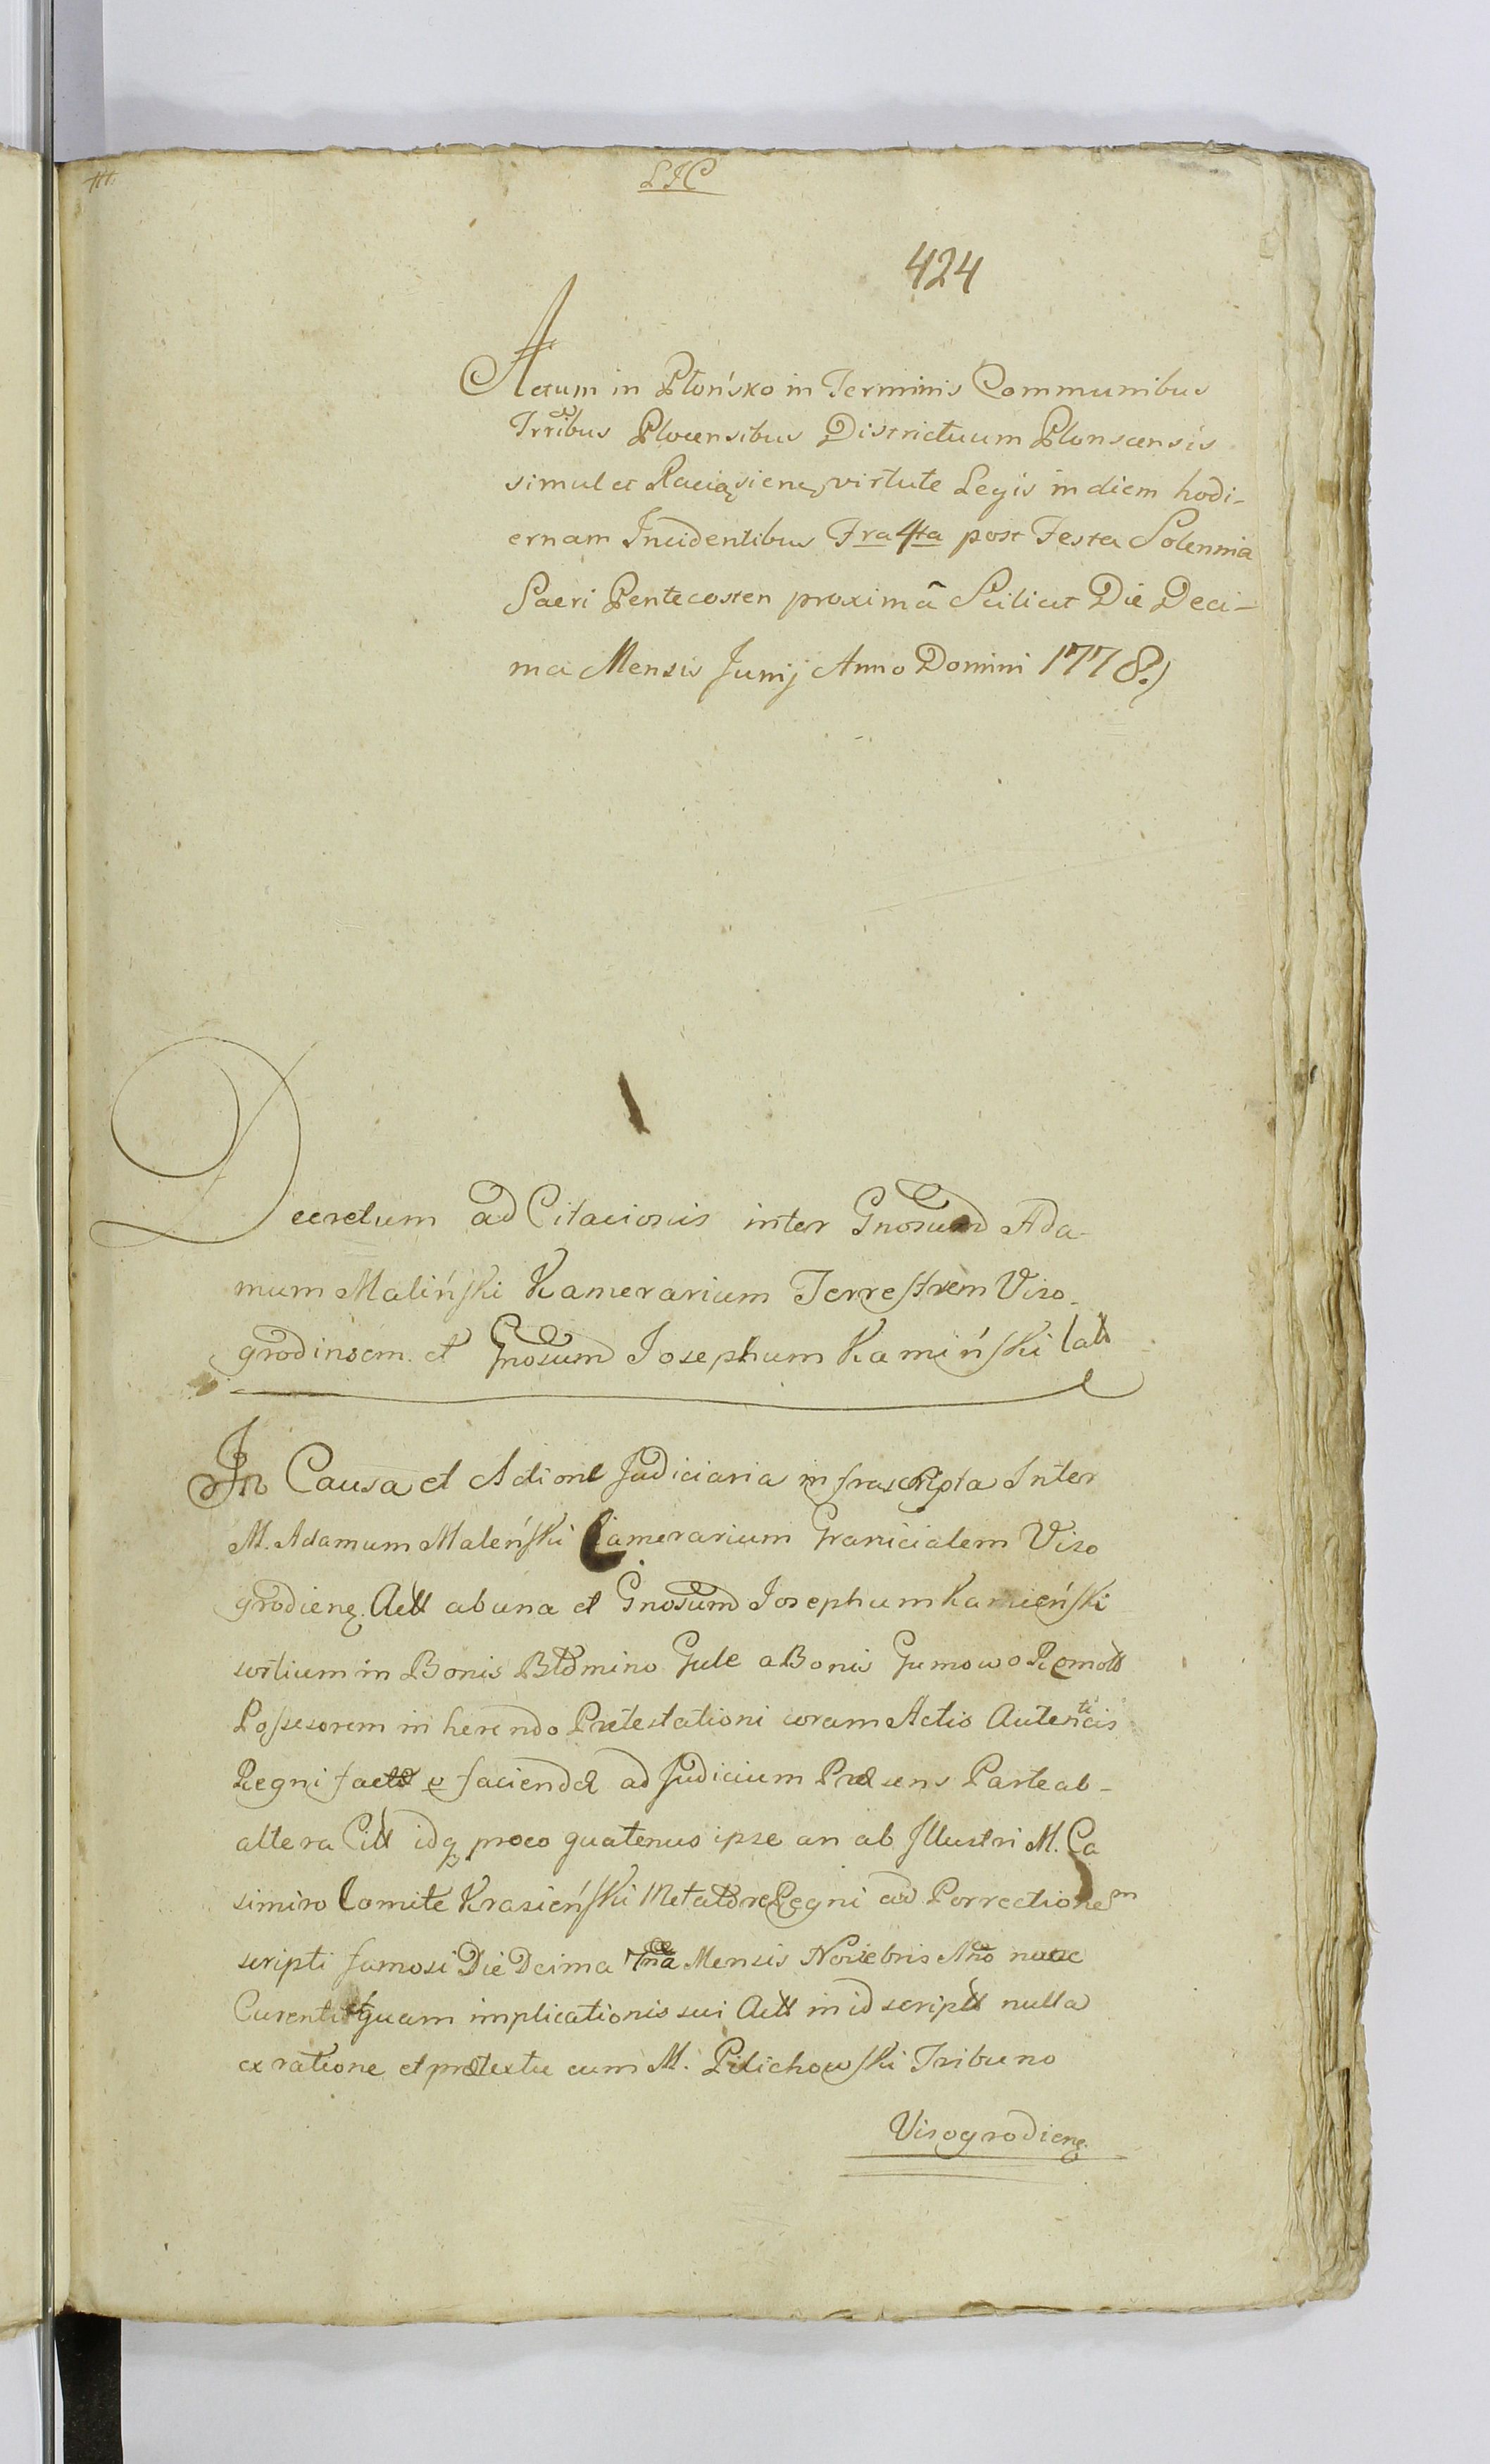 LJC
424
Actum in Płońsko in Terminis Communibus
Trribus Plocensibus Districtuum Plonscensis
simul et Raciąsienę virtute Legis in diem hodi-
ernam Incidentibus Fra 4ta post Festa Solennia
Sacri Pentecosten proximã Scilicet Die Deci-
ma Mensis Junij Anno Domini 1778.)
Decretum ad Citacionis inter Gnosum Ada-
mum Maliński Kamerarium Terrestrem Viso-
grodinsem. et Gnosum Josephum Kamiński
In Causa et Actione Judiciaria infrascripta Inter
M. Adamum Maleński Camerarium Granicialem Viso
grodienę. Actt ab una et Gnosum Josephum Kamieński
sortium in Bonis Błomino Gule a Bonis Gumowo
Possesorem in herendo Protestationi coram Actis Autenticis
Regni facto e faciendæ ad Judicium Præsens Parte ab-
altera Citt idq proeo quatenus ipse an ab Illustri M. Ca
simiro Comite Krasieński Metatore Regni ad Porrectionem
scripti famosi Die Decima 7ma Mensis Novebris Ano nunc
Curentis quam implicationis sui Actt in id scriptt nulla
ex ratione et prætextu cum M. Pilichowski Tribuno
Visogrodienę.